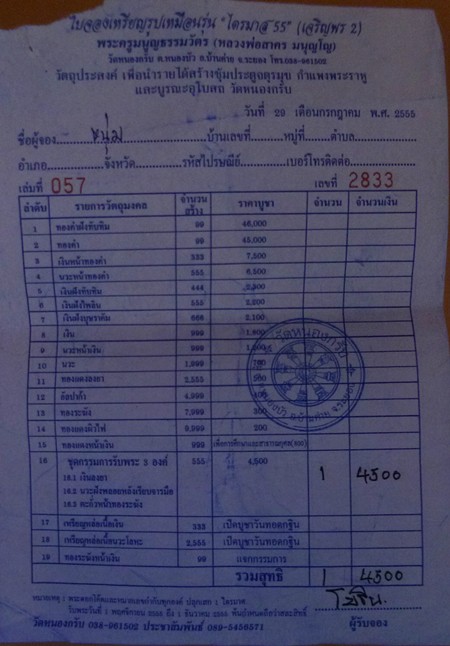 ใบจองเหรียญรูปเหมือนรุ่น "ไตรมาส 55" (เจริญพร 2)
พระครูมนูญธรรมวัตร (หลวงพ่อสาคร มนุญโญ)
วัดหนองกรับ ต.หนองบัว อ.บ้านค่าย จ.ระยอง โทร.038-961502
วัตถุประสงค์ เพื่อนำรายได้สร้างซุ้มประตูจตุรมุข กำแพงพระราหู
และบูรณะอุโบสถ วัดหนองกรับ
วันที่ 29 เดือนกรกฎาคม พ.ศ. 2555
ชื่อผู้จอง หนุ่ม บ้านเลขที่ หมู่ที่ ตำบล
อำเภอ จังหวัด รหัสไปรษณีย์ เบอร์โทรติดต่อ
เล่มที่ 057 เลขที่ 2833
ลำดับ รายการวัตถุมงคล จำนวนสร้าง ราคาบูชา จำนวน จำนวนเงิน
1 ทองคำฝังทับทิม 99 46,000
2 ทองคำ 99 45,000
3 เงินหน้าทองคำ 333 7,500
4 นวะหน้าทองคำ 555 6,500
5 เงินฝังทับทิม 444
6 เงินฝังไพลิน 555 2,200
7 เงินฝังบุษราคัม 666 2,100
8 เงิน 999
9 นวะหน้าเงิน 999
10 นวะ 1,999
11 ทองแดงลงยา 2,555
12 อัลปาก้า 4,999
13 ทองระฆัง 7,999
14 ทองแดงผิวไฟ 9,999 200
15 ทองแดงหน้าเงิน 999
16 ชุดกรรมการรับพระ 3 องค์ 555 4,500 1 4500
16.1 เงินลงยา
16.2 นวะฝังพลอยหลังเรียบจารมือ
16.3 ตะกั่วหน้าทองระฆัง
17 เหรียญหล่อเนื้อเงิน 333 เปิดบูชาวันทอดกฐิน
18 เหรียญหล่อเนื้อนวะโลหะ 2,555 เปิดบูชาวันทอดกฐิน
19 ทองระฆังหน้าเงิน 99 แจกกรรมการ
รวมสุทธิ 1 4500
หมายเหตุ : พระตอกโค๊ดและหมายเลขกำกับทุกองค์ ปลุกเสก 1 ไตรมาส
รับพระวันที่ 1 พฤศจิกายน 2555 ถึง 1 ธันวาคม 2555 พ้นกำหนดถือว่าสละสิทธิ์
วัดหนองกรับ 038-961502 ประชาสัมพันธ์ 089-5456571 ผู้รับจอง
วัดหนองกรับ